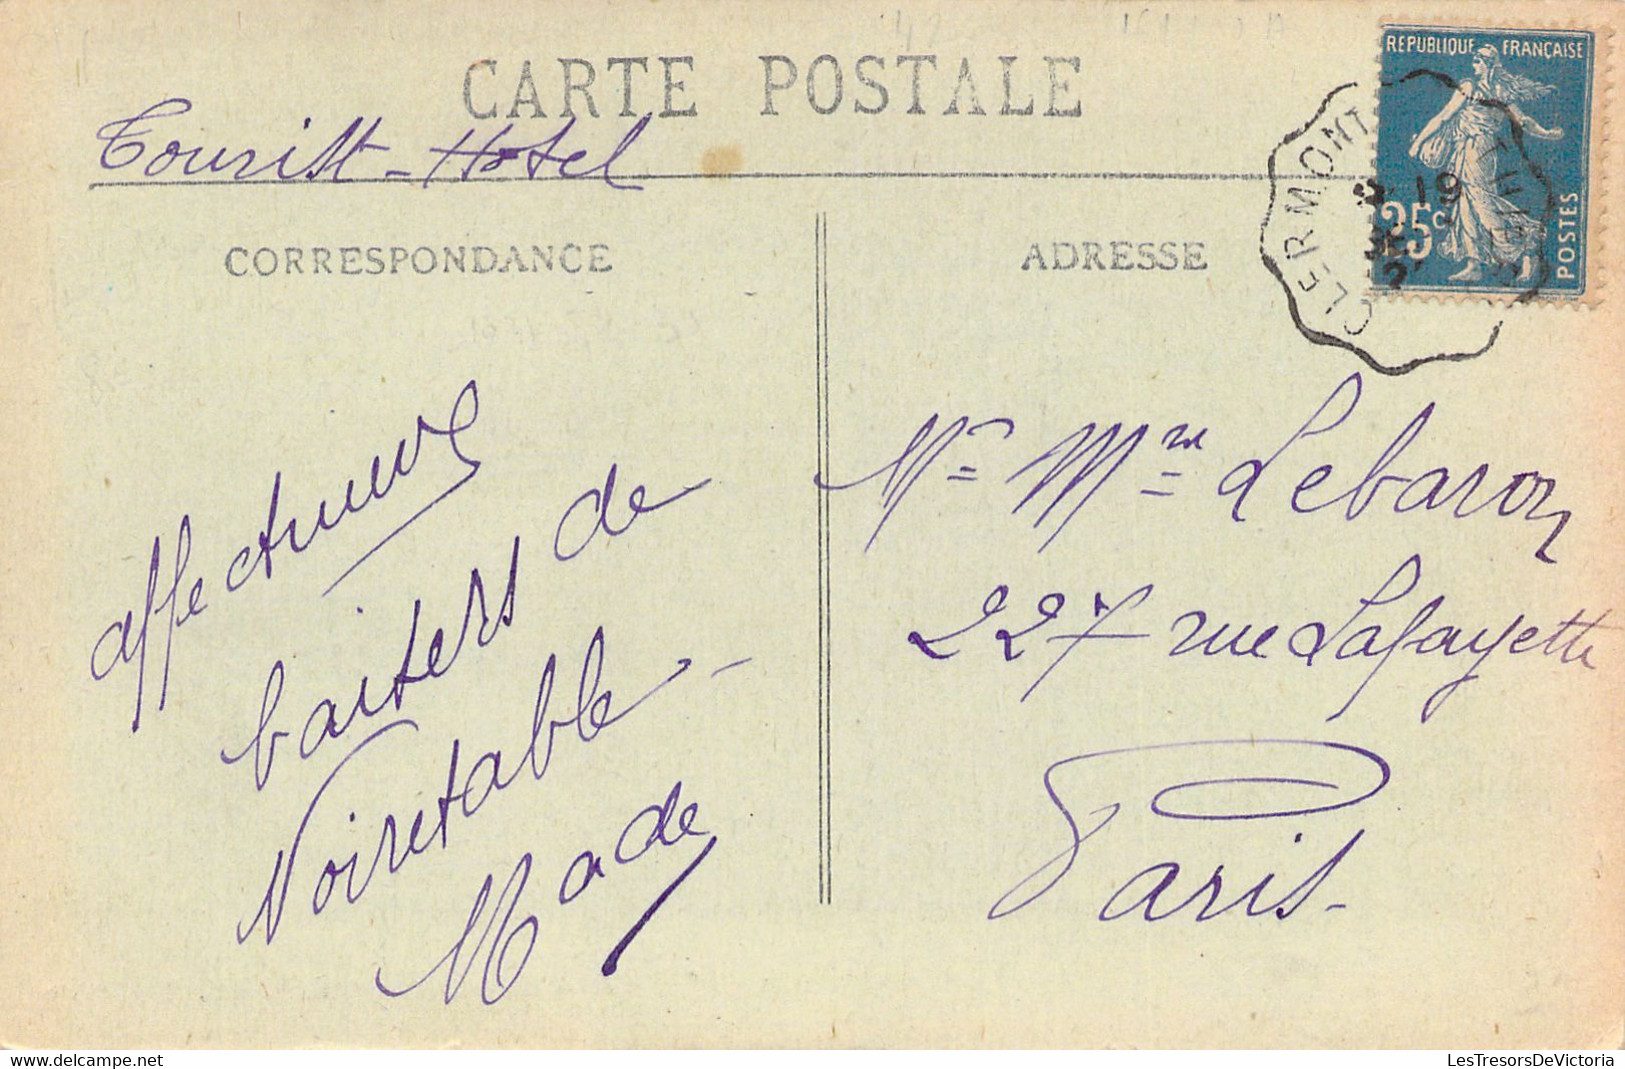 CARTE POSTALE
Tourist-Hotel
CORRESPONDANCE
ADRESSE
REPUBLIQUE FRANÇAISE
25c
POSTES
CLERMONT
19
affectueux
baisers de
Noiretable -
Made
Mr Mme Lebaron
227 rue Lafayette
Paris -
www.delcampe.net
LesTresorsDeVictoria